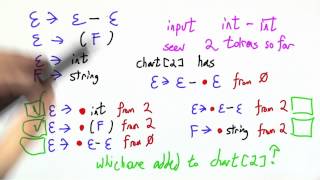 E → E - E
E → ( F )
E → int
F → string
input int - int
seen 2 tokens so far
chart[2] has
E → E - • E from 0
E → • int from 2
E → • ( F ) from 2
E → • E - E from 0
E → • E - E from 2
F → • string from 2
which are added to chart[2]?